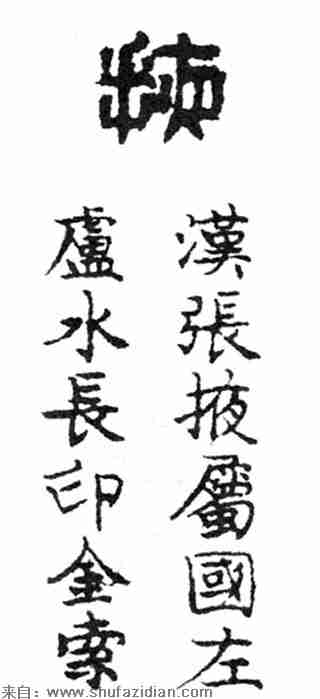 掖
漢張掖屬國左
盧水長印金索
来自：www.shufazidian.com